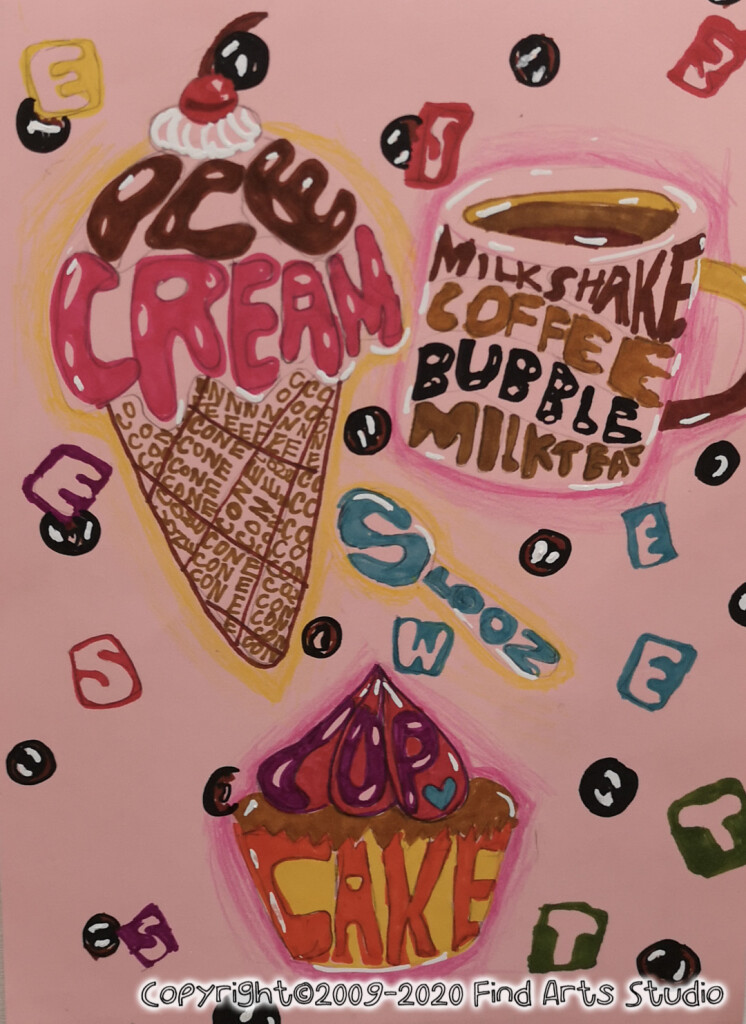 E
S
S
ICE
CREAM
MILKSHAKE
COFFEE
BUBBLE
MILKTEA
CONE
CONE
CONE
CONE
E
SPOON
E
W
S
E
CUP
CAKE
T
S
T
Copyright©2009-2020 Find Arts Studio